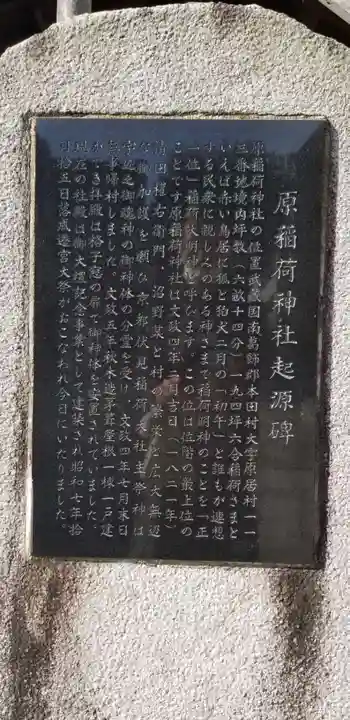 原稲荷神社起源碑
原稲荷神社の位置武蔵国南葛師郡本田村大字原居村一一
三番地境内坪数(六畝十四分)一九四坪六合稲荷さまと
いえば赤い鳥居に狐と狛犬二月の「初午」と誰もが連想
する民衆に親しみのある神さまで稲荷明神のことを「正
一位」稲荷大明神と呼びます。この位は位階の最上位の
ことです原稲荷神社は文政四年二月吉日(一八二一年)
清田権右衛門・沼野某と村の繁栄と広大無辺
な御加護を願ひ京都伏見稲荷大社主祭神は
宇迦之御魂神の御神体の分霊を受け、文政四年七月末日
無事帰村しました。文政五年秋木造茅葺屋根一棟一戸建
かつき拝殿は格子窓の扉で御神体を安置されていました。
現在の社殿は御大堙記念事業として建築され昭和七年拾
月拾五日落成遷宮大祭がおこなわれ今日にいたりました。